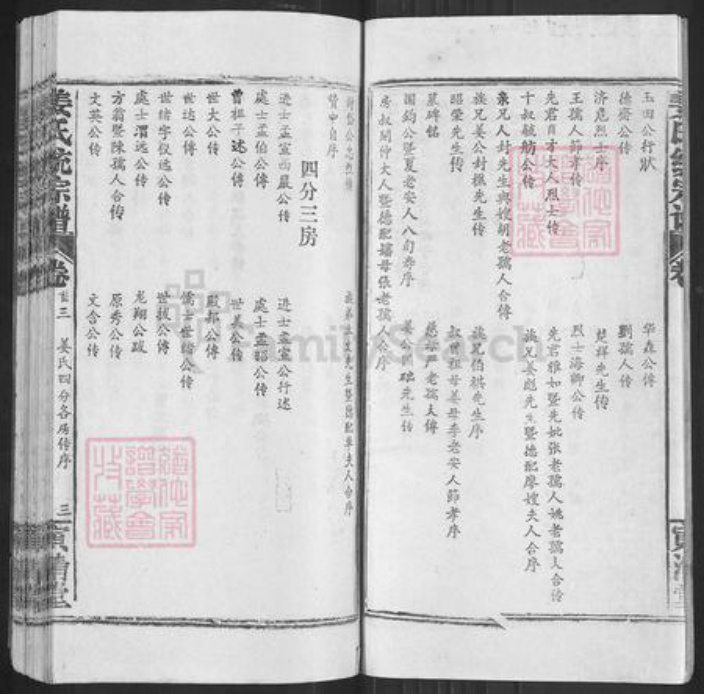 玉田公行狀
華森公傳
德齋公傳
劉孺人傳
濟危烈士序
楚祥先生傳
王孺人節孝傳
烈士海卿公傳
先君自才大人烈士傳
先君雅如暨先妣張老孺人姚老孺人合傳
十叔毓舫公傳
族兄姜彪先生暨德配廖嫂夫人合序
亲兄人封先生與嫂胡老孺人合傳
族兄姜公封樵先生傳
族兄伯祺先生序
昭榮先生傳
叔世祖母姜母李老安人節孝序
墓碑铭
慈母严老孺人傳
國鈞公暨夏老安人八旬壽序
姜 础先生傳
房叔開仲大人暨德配嬸母張老孺人合序
族弟 先生暨德配 夫人合序
贊中自序
四分三房
进士孟寅西巖公传
进士孟寅公行述
處士孟伯公傳
處士孟昭公传
曾祖子述公傳
世美公傳
世大公传
殿邦公傳
世达公傳
儒士世緒公传
世緒字仪选公传
世拔公傳
處士渭远公传
龙翔公跋
方翁暨陳孺人合传
原秀公传
文英公传
文含公传
姜氏統宗譜
卷
三
姜氏四分各房传序
三
FamilySearch